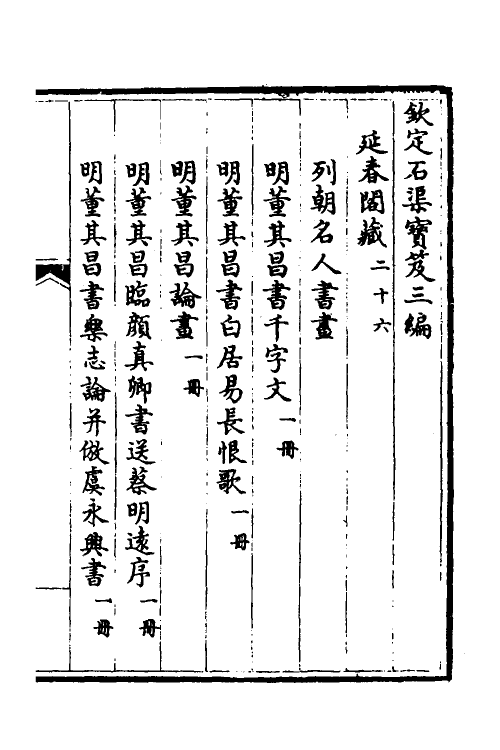 欽定石渠寶笈三編
延春閣藏二十六
列朝名人書畫
明董其昌書千字文一冊
明董其昌書白居易長恨歌一冊
明董其昌論畫一冊
明董其昌臨顏真卿書送蔡明遠序一冊
明董其昌書樂志論并倣虞永興書一冊